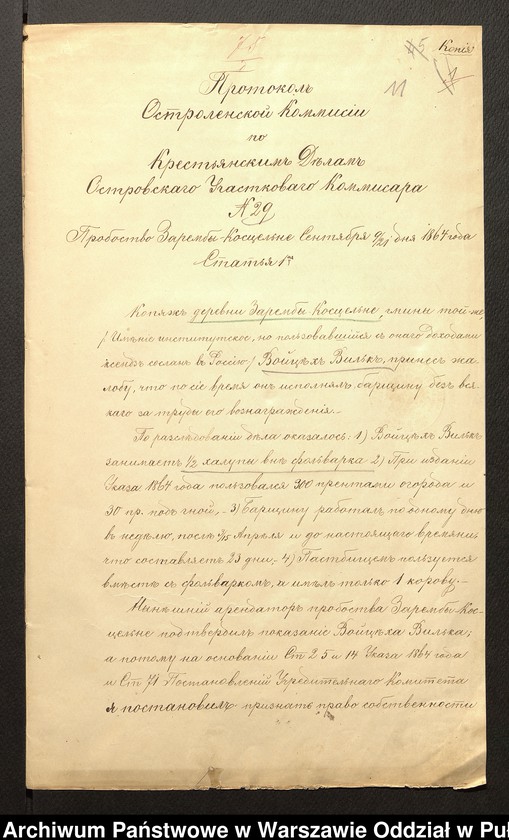 75
Копія
11
Протоколъ
Остроленской Коммисіи
по
Крестьянскимъ Дѣламъ
Островскаго Участковаго Коммисара
№ 29
Пробоство Зарембы-Косцельне Сентября 9/21 дня 1864 года
Статья 1я
Копяжъ деревни Зарембы-Косцельне, гмины той же
/Имѣніе институтское, но пользовавшійся съ онаго доходами
ксендзъ сосланъ въ Россію/ Войцѣхъ Вилькъ, принесъ жа-
лобу, что по сіе время онъ исполнялъ барщину безъ вся-
каго за труды его вознагражденія.-
По разслѣдованіи дѣла оказалось: 1) Войцѣхъ Вилькъ
занимаетъ 1/2 халупы внѣ фольварка 2) При изданіи
Указа 1864 года пользовался 300 прентами огорода и
30 пр. подъ гной.- 3) Барщину работалъ по одному дню
въ недѣлю, послѣ 3/15 Апрѣля и до настоящаго времени,
что составляетъ 23 дни.- 4) Пастбищемъ пользуется
вмѣстѣ съ фольваркомъ, а имѣлъ только 1 корову.-
Нынѣшній арендаторъ пробоства Зарембы Кос-
цельне подтвердилъ показаніе Войцѣха Вилька;
а потому на основаніи Ст 2 5 и 14 Указа 1864 года
и Ст 71 Постановленій Учредительнаго Комитета
Я постановилъ признать право собственности
Archiwum Państwowe w Warszawie Oddział w Puł